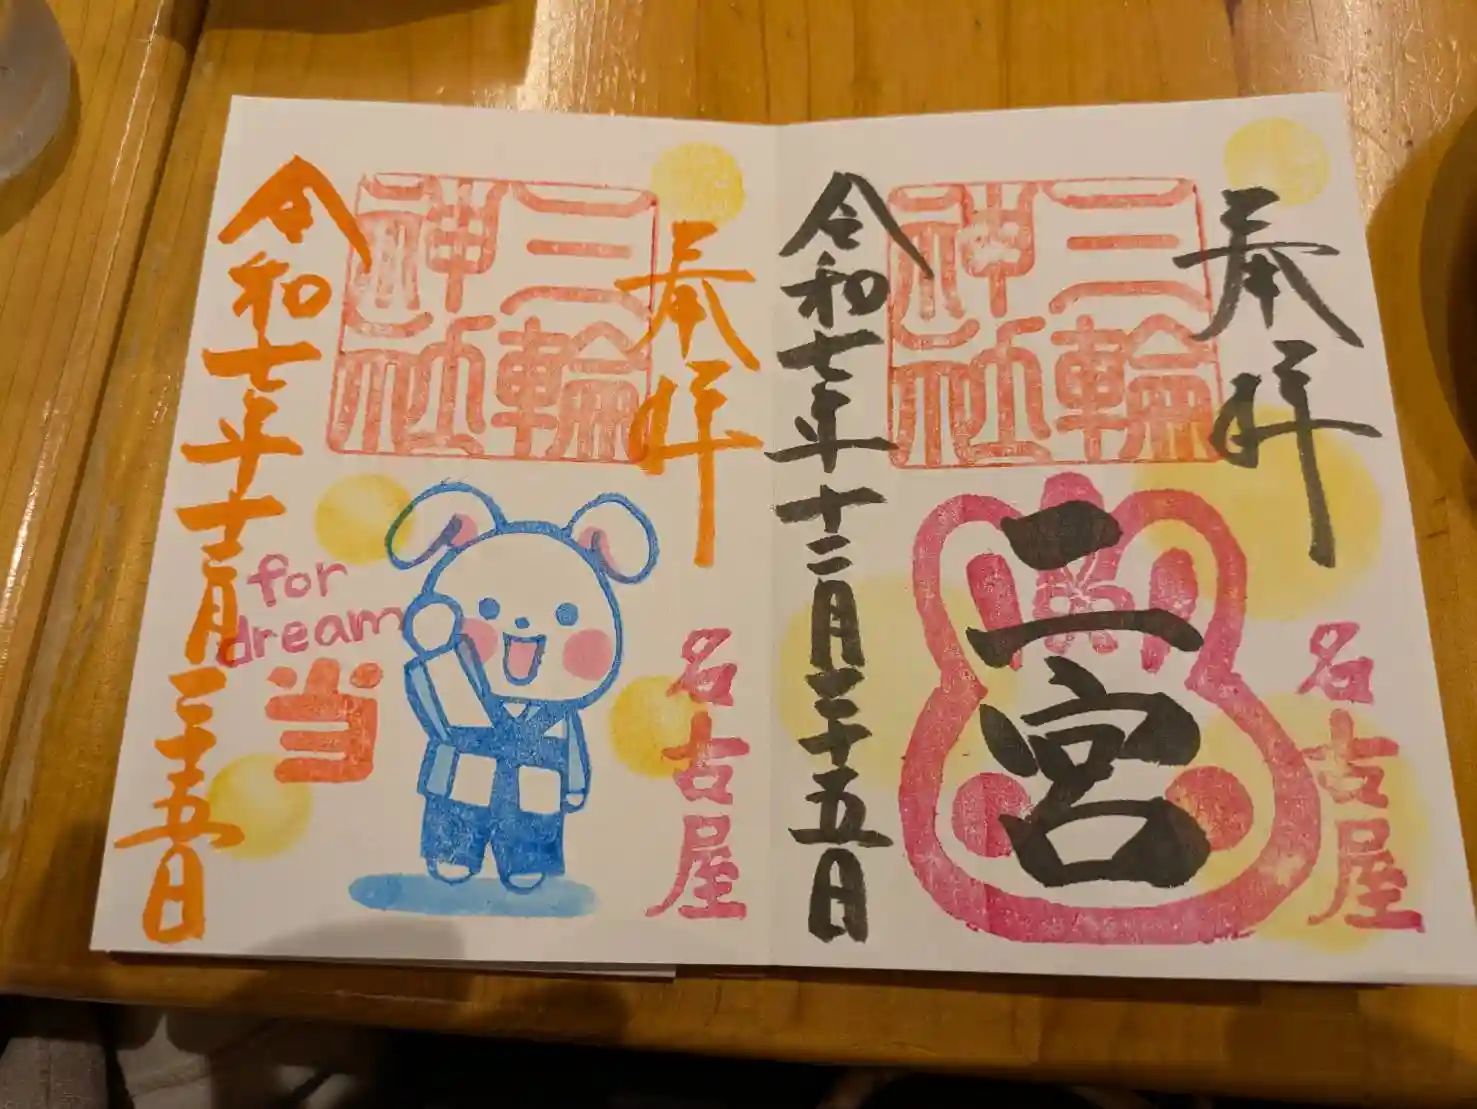 奉拝
名古屋
三輪
神社
二宮
令和七年十二月二十五日
奉拝
名古屋
三輪
神社
for
dream
当
令和七年十二月二十五日